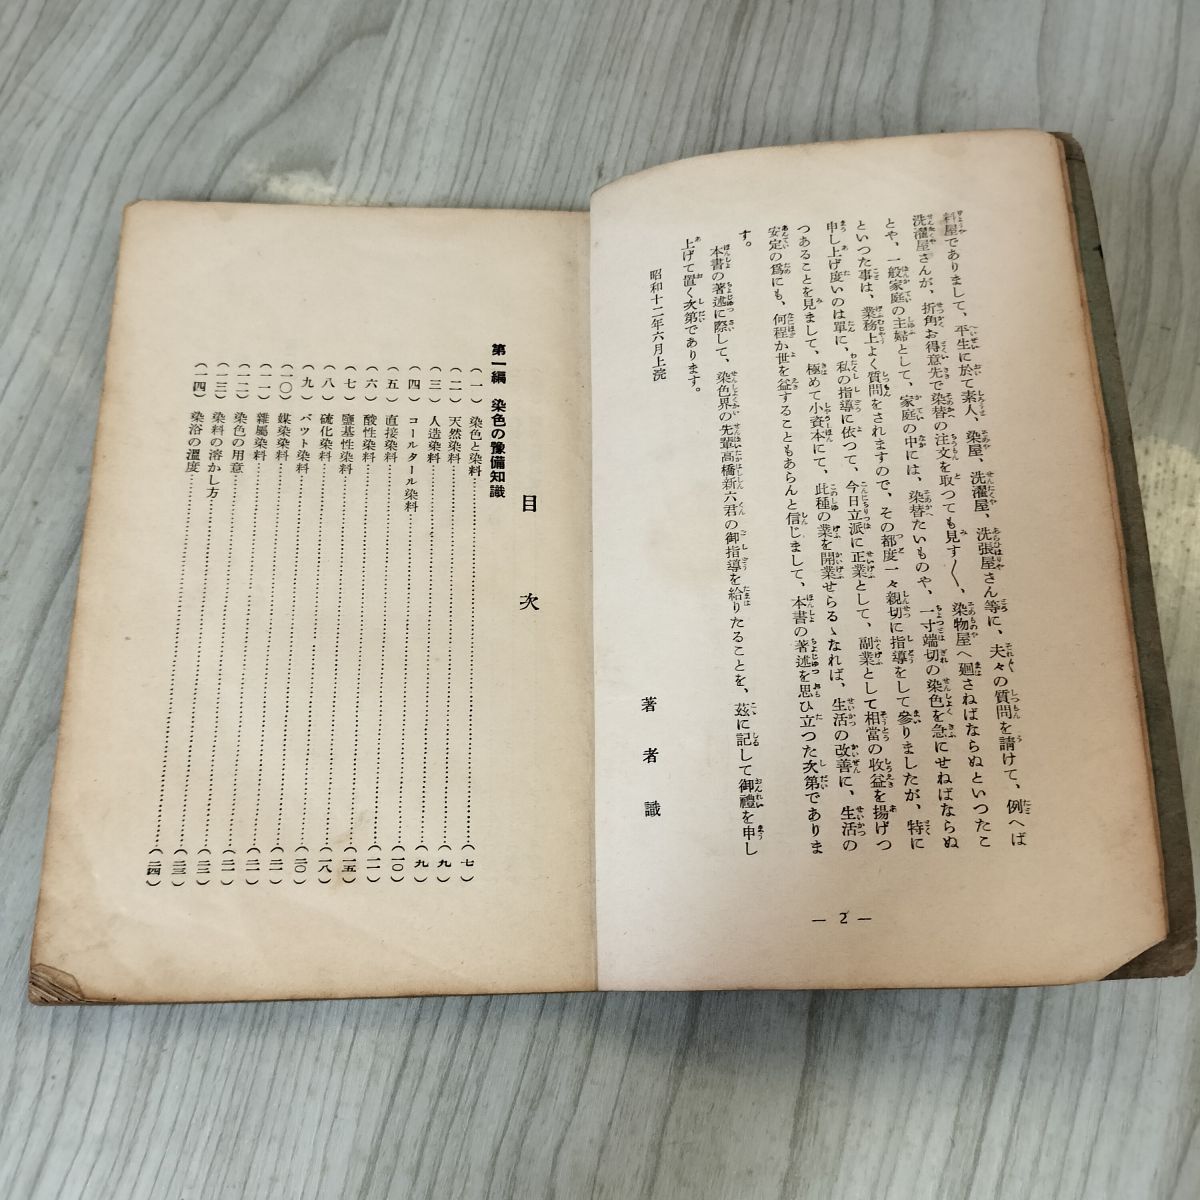 料屋でありまして、平生に於て素人、染屋、洗濯屋、洗張屋さん等に、夫々の質問を請けて、例へば
洗濯屋さんが、折角お得意先で染替の注文を取つても見す〱、染物屋へ廻さねばならぬといつたこ
とや、一般家庭の主婦として、家庭の中には、染替たいものや、一寸端切の染色を急にせねばならぬ
といつた事は、業務上よく質問をされますので、その都度一々親切に指導をして參りましたが、特に
申し上げ度いのは單に、私の指導に依つて、今日立派に正業として、副業として相當の收益を揚げつ
つあることを見まして、極めて小資本にて、此種の業を開業せらるゝなれば、生活の改善に、生活の
安定の爲にも、何程か世を益することもあらんと信じまして、本書の著述を思ひ立つた次第でありま
す。
本書の著述に際して、染色界の先輩高橋新六君の御指導を給りたることを、茲に記して御禮を申し
上げて置く次第であります。
昭和十二年六月上浣
著者識
— 2 —
目次
第一編 染色の豫備知識
(一) 染色と染料……(七)
(二) 天然染料……(九)
(三) 人造染料……(九)
(四) コールタール染料……(一〇)
(五) 直接染料……(一一)
(六) 酸性染料……(一五)
(七) 鹽基性染料……(一八)
(八) 硫化染料……(二〇)
(九) バツト染料……(二一)
(一〇) 媒染染料……(二一)
(一一) 雜屬染料……(二一)
(一二) 染色の用意……(二二)
(一三) 染料の溶かし方……(二三)
(一四) 染浴の溫度……(二四)